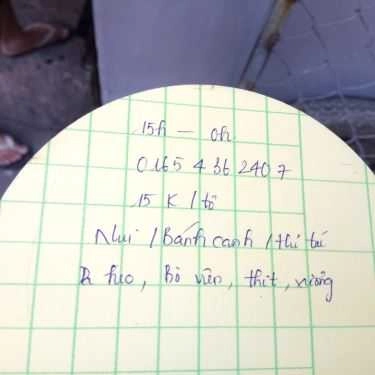 15h - 0h
0165 4 36 240 7
15 K / tô
Nui / Bánh canh /
heo, Bò viên, thịt, xương